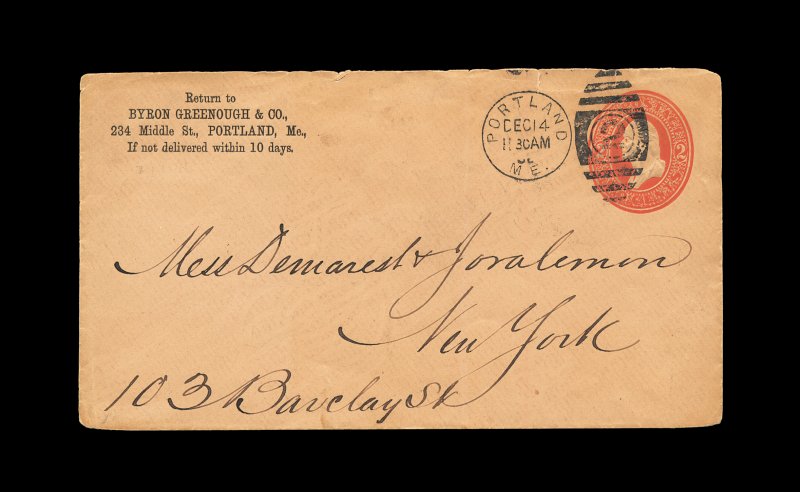 Return to
BYRON GREENOUGH & CO.,
234 Middle St., PORTLAND, Me.,
If not delivered within 10 days.
PORTLAND
DEC 14
11 30 AM
ME.
2
Mess Demarest & Joralemon
New York
103 Barclay St